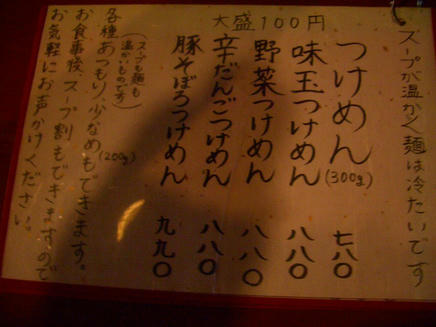 スープが温かく麺は冷たいです
大盛100円
つけめん(300g) 七八〇
味玉つけめん 八八〇
野菜つけめん 八八〇
辛だんごつけめん 八八〇
豚そぼろつけめん 九九〇
(スープも麺も
温かいものです)
各種あつもり、少なめもできます。
(200g)
お食事後、スープ割もできますので
お気軽にお声かけください。